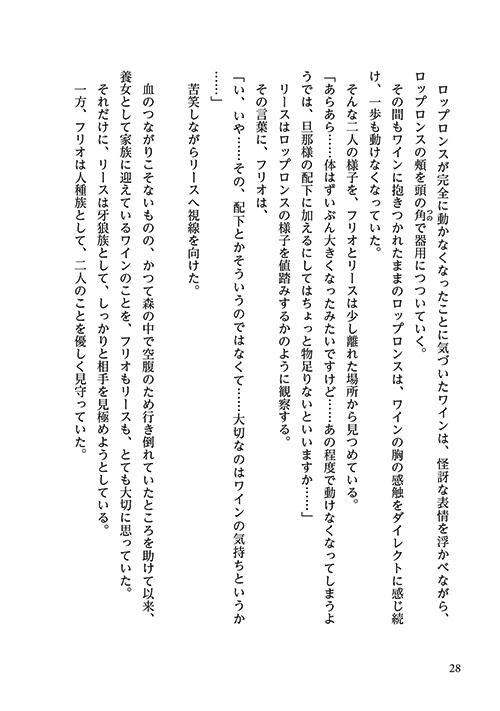 ロップロンスが完全に動かなくなったことに気づいたワインは、怪訝な表情を浮かべながら、
ロップロンスの頰を頭の角で器用につついていく。
つの
その間もワインに抱きつかれたままのロップロンスは、ワインの胸の感触をダイレクトに感じ続
け、一歩も動けなくなっていた。
そんな二人の様子を、フリオとリースは少し離れた場所から見つめている。
「あらあら……体はずいぶん大きくなったみたいですけど……あの程度で動けなくなってしまうよ
うでは、旦那様の配下に加えるにしてはちょっと物足りないといいますか……」
リースはロップロンスの様子を値踏みするかのように観察する。
その言葉に、フリオは、
「い、いや……その、配下とかそういうのではなくて……大切なのはワインの気持ちというか
……」
苦笑しながらリースへ視線を向けた。
血のつながりこそないものの、かつて森の中で空腹のため行き倒れていたところを助けて以来、
養女として家族に迎えているワインのことを、フリオもリースも、とても大切に思っていた。
それだけに、リースは牙狼族として、しっかりと相手を見極めようとしている。
一方、フリオは人種族として、二人のことを優しく見守っていた。
28